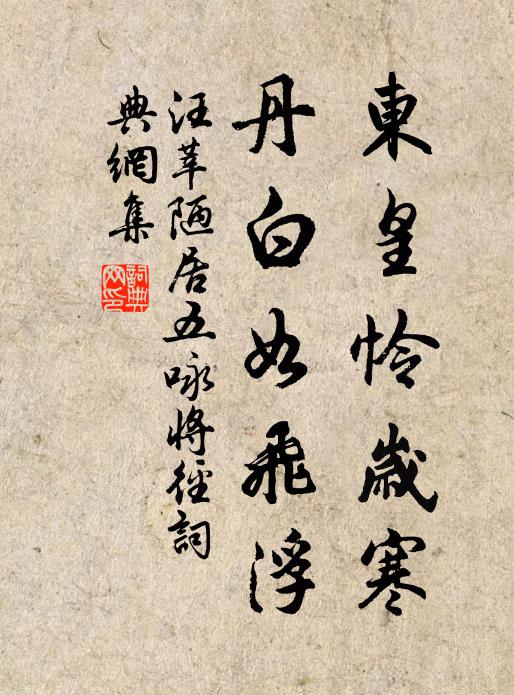 東皇怜歲寒
丹白如飛浮
汪莘陋居五咏將徑詞
典網集
詞典網印